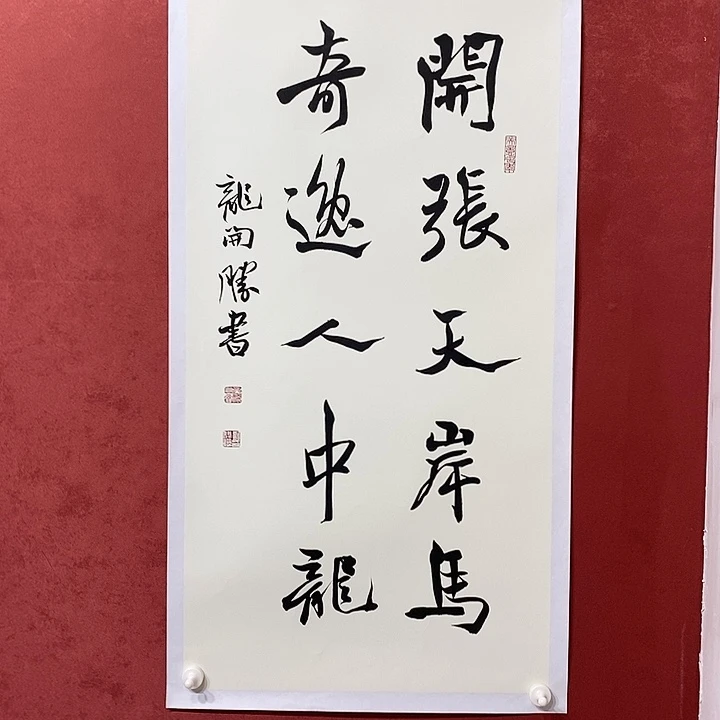 開張天岸馬
奇逸人中龍
龍開勝書